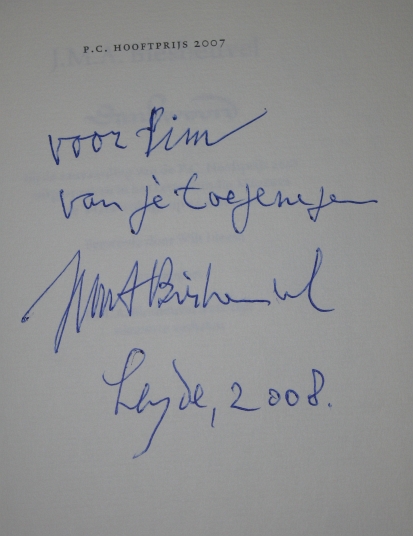 P.C. HOOFTPRIJS 2007
voor Pim
van je toegenegen
JMA Biesheuvel
Leyde, 2008.